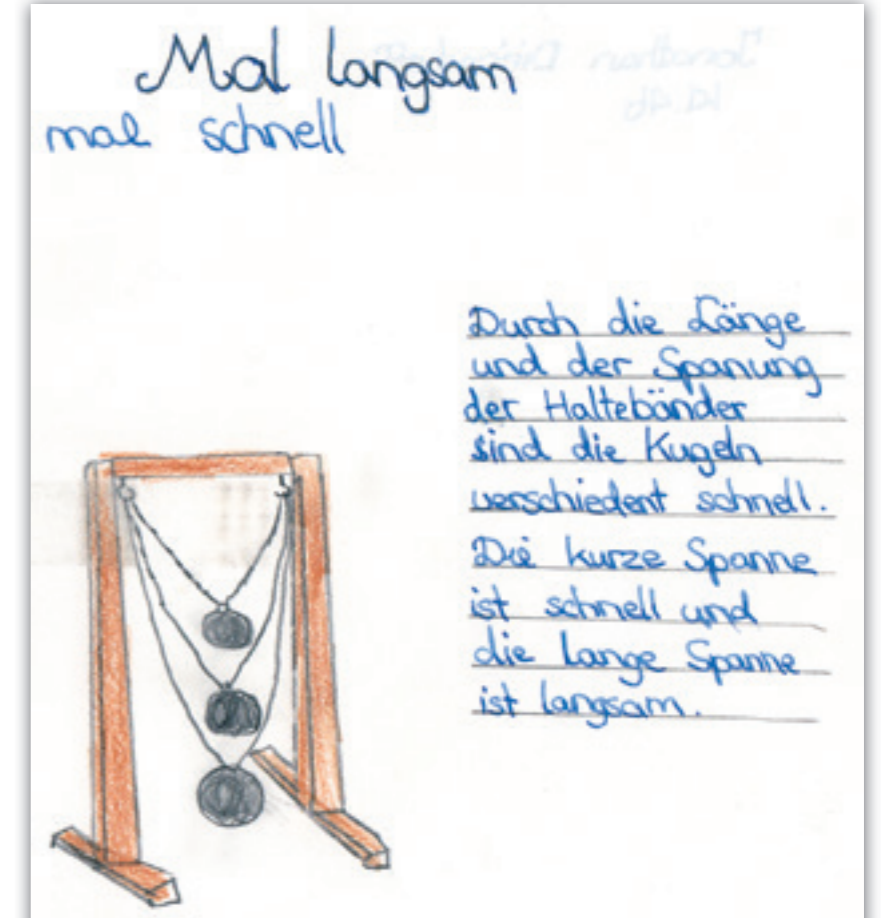 Mal langsam
mal schnell
Durch die Länge
und der Spanung
der Haltebänder
sind die Kugeln
verschiedent schnell.
Die kurze Spanne
ist schnell und
die lange Spanne
ist langsam.